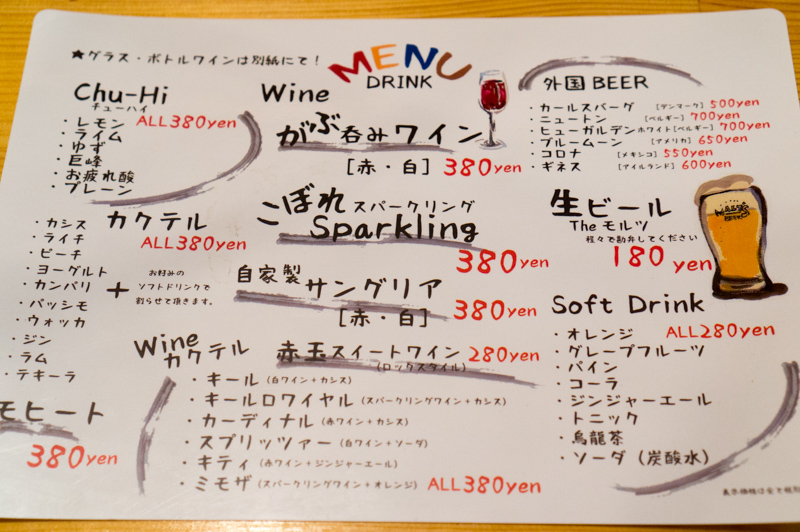 ★グラス・ボトルワインは別紙にて!
MENU
DRINK
Chu-Hi
チューハイ
・レモン ALL380yen
・ライム
・ゆず
・巨峰
・お疲れ酸
・プレーン
カクテル
ALL380yen
・カシス
・ライチ
・ピーチ
・ヨーグルト
・カンパリ
・パッシモ
・ウォッカ
・ジン
・ラム
・テキーラ
+
お好みの
ソフトドリンクで
割らせて頂きます。
モヒート
380yen
Wine
がぶ呑みワイン
[赤・白] 380yen
こぼれスパークリング
Sparkling
380yen
自家製サングリア
[赤・白] 380yen
赤玉スイートワイン 280yen
(ロックスタイル)
Wine
カクテル
・キール (白ワイン+カシス)
・キールロワイヤル (スパークリングワイン+カシス)
・カーディナル (赤ワイン+カシス)
・スプリッツァー (白ワイン+ソーダ)
・キティ (赤ワイン+ジンジャーエール)
・ミモザ (スパークリングワイン+オレンジ) ALL380yen
外国BEER
・カールスバーグ [デンマーク] 500yen
・ニュートン [ベルギー] 700yen
・ヒューガルデンホワイト[ベルギー] 700yen
・ブルームーン [アメリカ] 650yen
・コロナ [メキシコ] 550yen
・ギネス [アイルランド] 600yen
生ビール
The モルツ
程々で勘弁してください
180yen
Soft Drink
・オレンジ ALL280yen
・グレープフルーツ
・パイン
・コーラ
・ジンジャーエール
・トニック
・烏龍茶
・ソーダ(炭酸水)
表示価格は全て税別